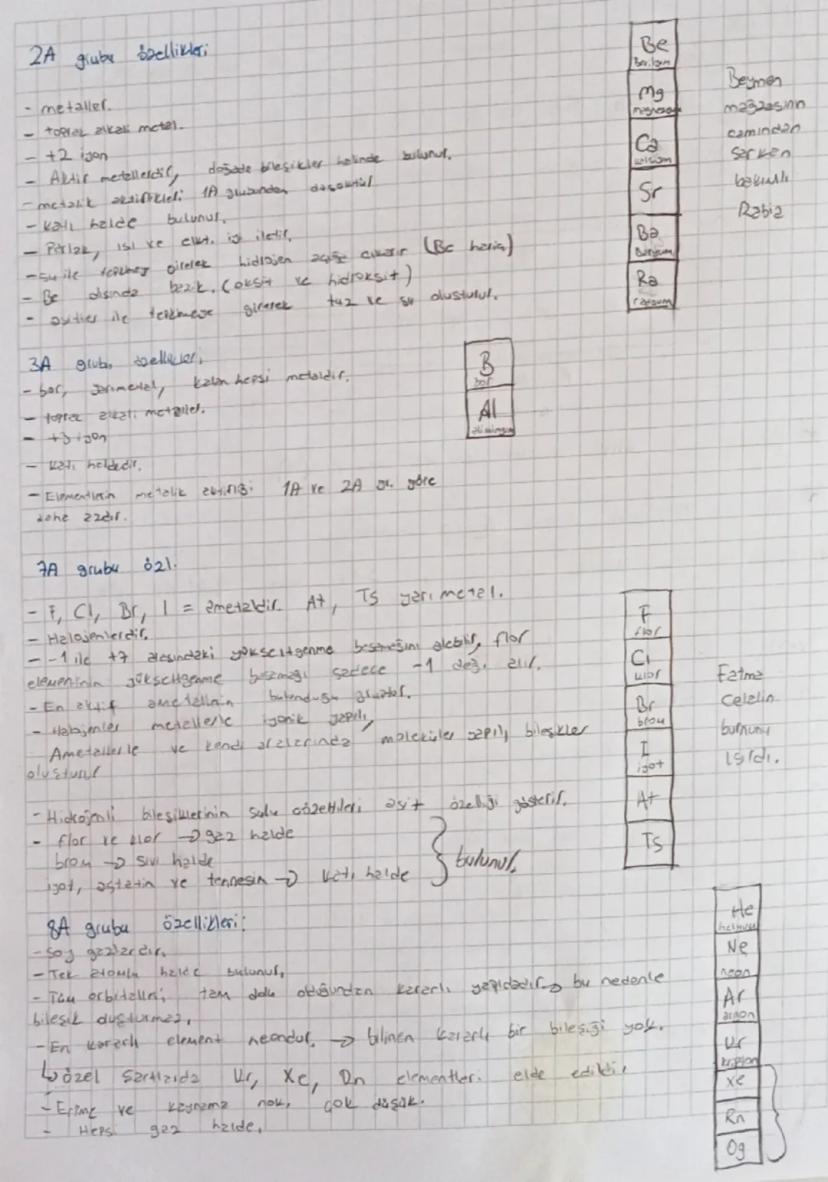 2A grubu özellikleri
- metaller.
- toprak alkali metal.
- +2 iyon
- Aktif metallerdir, doğada bileşikler halinde bulunur.
- metalik aktiflikleri 1A grubundan düşüktür
- katı halde bulunur.
- Parlak, ısı ve elkt. iyi iletir.
- su ile tepkimeye girerek hidrojen açığa çıkarır (Be hariç)
- Be dışında bazik. (oksit ve hidroksit)
- asitler ile tepkimeye girerek tuz ve su oluşturur.
Be
Berilyum
Mg
magnezyum
Ca
kalsiyum
Sr
Ba
Baryum
Ra
radyum
Beymen
mağazasının
camından
sarkan
bakışlı
Rabia
3A grubu özellikleri
- bor, yarımetal, kalan hepsi metaldir.
- toprak alkali metaller.
- +3 iyon
- katı haldedir.
- Elementlerin metalik aktifliği 1A ve 2A gr. göre
daha azdır.
B
bor
Al
alüminyum
7A grubu özl.
- F, Cl, Br, I = ametaldir. At, Ts yarı metal.
- Halojenlerdir.
- -1 ile +7 arasındaki yükseltgenme basamağını alabilir, flor
elementinin yükseltgenme basamağı sadece -1 değ. alır.
- En aktif ametalinin bulunduğu gruptur.
- Halojenler metallerle iyonik yapılı,
Ametallerle ve kendi aralarında moleküler yapılı bileşikler
oluşturur
- Hidrojenli bileşiklerinin sulu çözeltileri asit özelliği gösterir.
- flor ve klor → gaz halde
brom → sıvı halde
iyot, astatin ve tennesin → katı halde
bulunur.
F
flor
Cl
klor
Br
brom
I
iyot
At
Ts
Fatma
Celalin
burnunu
ısırdı.
8A grubu özellikleri:
- Soy gazlardır.
- Tek atomlu halde bulunur.
- Tüm orbitalleri, tam dolu olduğundan kararlı yapıdadır → bu nedenle
bileşik oluşturmaz.
- En kararlı element neondur. → bilinen kararlı bir bileşiği yok.
↳ özel şartlarda Kr, Xe, Rn elementleri elde edildi.
- Erime ve kaynama nok. çok düşük.
- Hepsi gaz halde.
He
helyum
Ne
neon
Ar
argon
Kr
kripton
Xe
Rn
Og